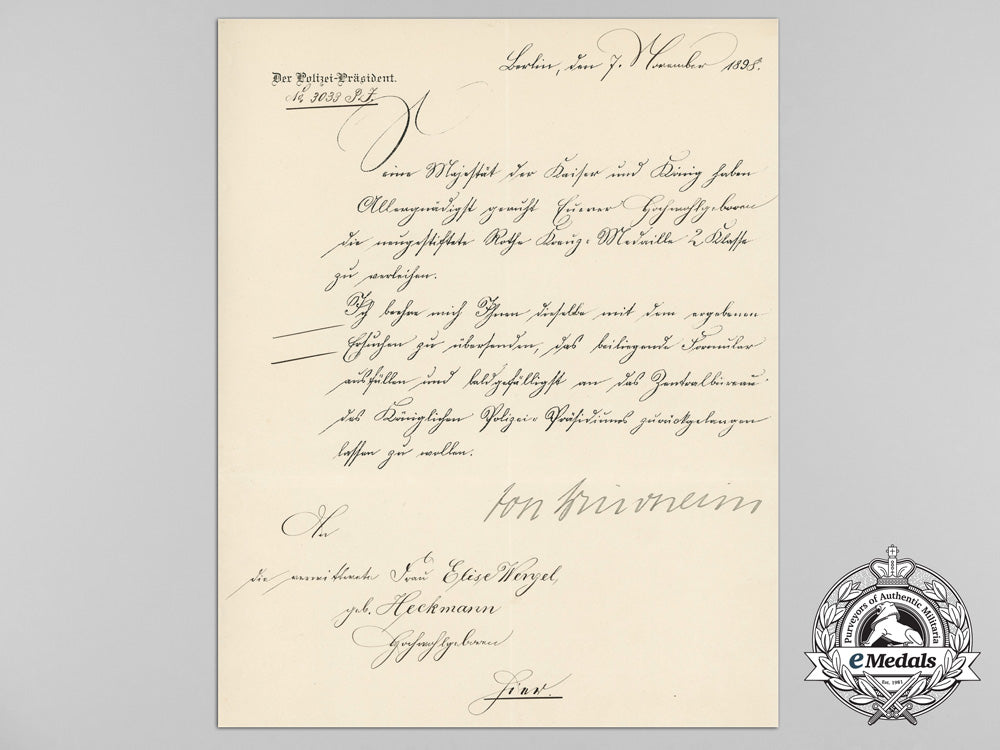 Berlin, den 7. November 1898.
Der Polizei-Präsident.
No 3033 P. J.
Seine Majestät der Kaiser und König haben
Allergnädigst geruht Euerer Hochwohlgeboren
die neugestiftete Rothe Kreuz-Medaille 2 Klasse
zu verleihen.
Ich beehre mich Ihnen dieselbe mit dem ergebenen
Ersuchen zu übersenden, das beiliegende Formular
ausfüllen und baldgefälligst an das Zentralbüreau
des Königlichen Polizei-Präsidiums zurückgelangen
lassen zu wollen.
von Windheim
An
die verwittwete Frau Elise Wenzel,
geb. Heckmann
Hochwohlgeboren
Hier.
Purveyors of Authentic Militaria
eMedals
Est. 1961